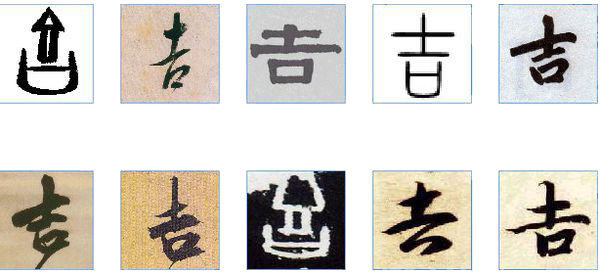 吉 吉 吉 吉 吉
吉 吉 吉 吉 吉